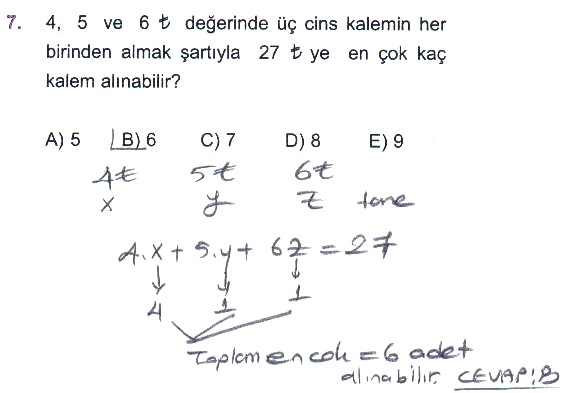 7. 4, 5 ve 6 ₺ değerinde üç cins kalemin her
birinden almak şartıyla 27 ₺ ye en çok kaç
kalem alınabilir?
A) 5 B) 6 C) 7 D) 8 E) 9
4₺ 5₺ 6₺
x y z tane
4.x + 5.y + 6z = 27
4 1 1
Toplam en çok = 6 adet
alınabilir. CEVAP: B